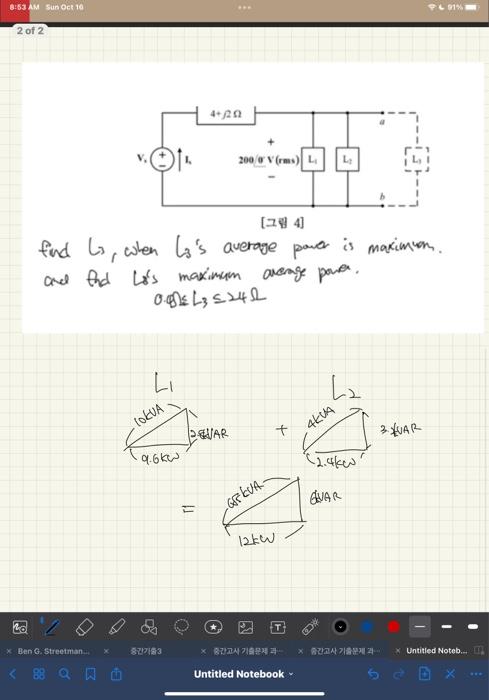 8:53 AM Sun Oct 16
91%
2 of 2
4+j2 Ω
a
+
Vs
Is
200/0° V(rms)
L₁
L₂
L₃
−
b
[그림 4]
find L₃, when L₃'s average power is maximum.
and find L₃'s maximum average power.
≤ L₃ ≤ 24Ω
L₁
L₂
10kVA
9.6kW
+
4kVA
2.4kW
=
kVA
12kW
6kVAR
Ben G. Streetman...
중간기출3
중간고사 기출문제 과...
중간고사 기출문제 과...
Untitled Noteb...
Untitled Notebook